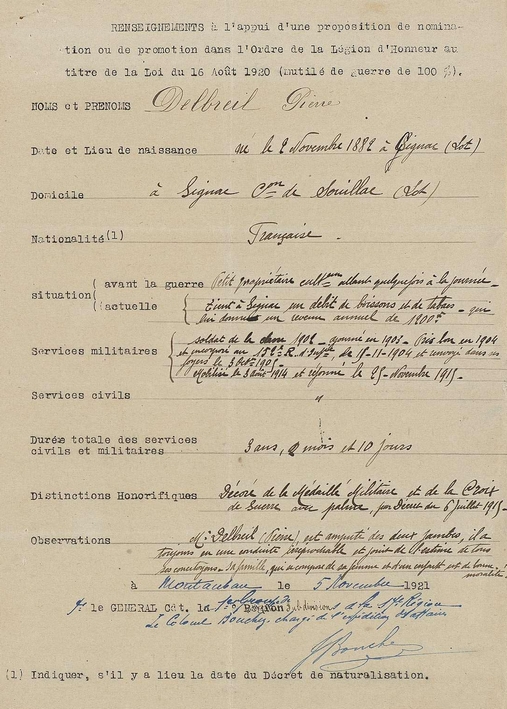 RENSEIGNEMENTS à l'appui d'une proposition de nomina-
tion ou de promotion dans l'Ordre de la Légion d'Honneur au
titre de la Loi du 16 Août 1920 (mutilé de guerre de 100 %).
NOMS et PRENOMS Delbreil Pierre
Date et Lieu de naissance né le 2 Novembre 1882 à Gignac (Lot)
Domicile à Gignac Con de Souillac (Lot)
Nationalité(1) Française.
situation ( avant la guerre Petit propriétaire cultteur allant quelquefois à la journée.
( actuelle tient à Gignac un débit de boissons et de tabacs - qui
lui donne un revenu annuel de 1200f
Services militaires soldat de la classe 1902 - ajourné en 1903 - Pris bon en 1904
et incorporé au R. d'Inf. le 15-11-1904 et renvoyé dans ses
foyers le 1905.
Mobilisé le 3 août 1914 et réformé le 25 Novembre 1915-
Services civils "
Durée totale des services
civils et militaires 3 ans, mois et 10 jours
Distinctions Honorifiques Décoré de la Médaille Militaire et de la Croix
de Guerre avec palme, par Décret du 6 Juillet 1915-
Observations Mr Delbreil (Pierre), est amputé des deux jambes, il a
toujours eu une conduite irréprochable et jouit de l'estime de tous
ses concitoyens. Sa famille, qui se compose de sa femme et d'un enfant est de bonne
moralité.
à Montauban le 5 Novembre 1921
Pr le GENERAL Cdt. la Subdivision de la 17e Région
Le Colonel Bouchez, chargé de l'expédition des affaires
Bouchez
(1) Indiquer, s'il y a lieu la date du Décret de naturalisation.